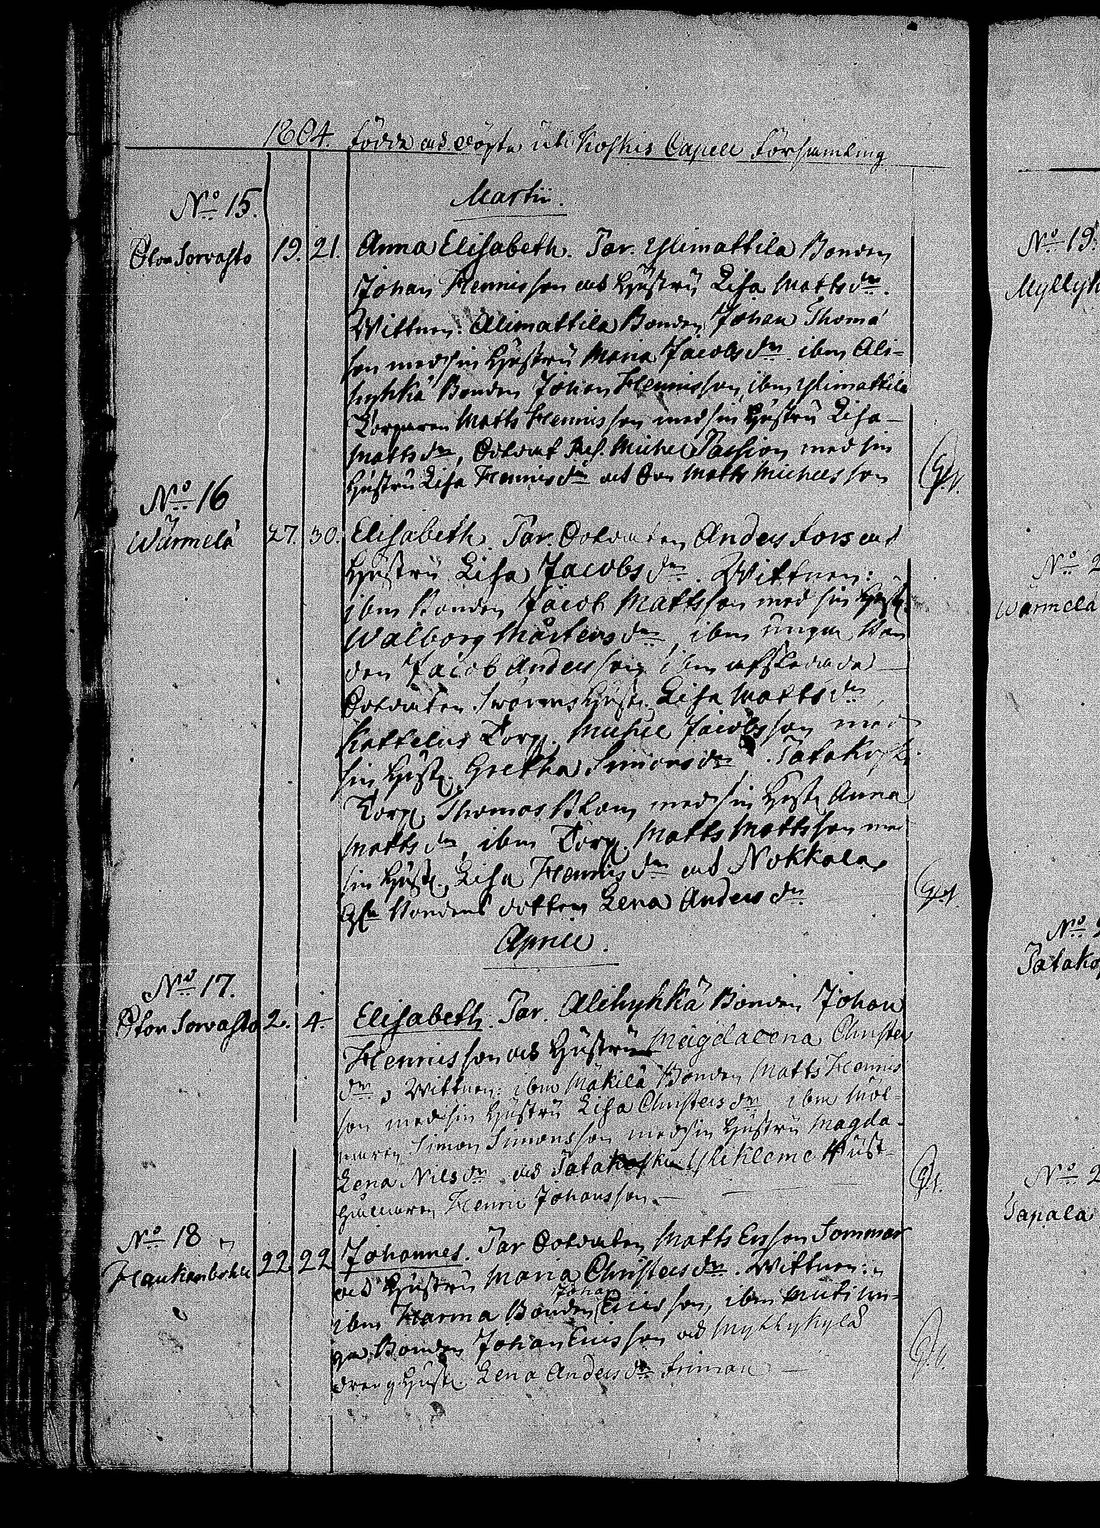 1804. Födde och döpte uti Koskis Capell Församling
Martii.
No 15.
Stor Sorvasto 19. 21. Anna Elisabeth. Par. Ylimattila Bonden
Johan Hennicsson och Hustru Lisa Matts dr.
Wittnen: Alimattila Bonden Johan Thomæ
son med sin Hustru Maria Jacobs dr ibm Ali-
hyhkä Bonden Johan Hennicsson, ibm Ylimattila
Torparen Matts Hennicsson med sin Hustru Lisa
Matts dr, Soldat Michel Passion med sin
Hustru Lisa Hennics dr och Matts Michelsson
No 16
Wärmelä 27. 30. Elisabeth. Par. Soldaten Anders Fors och
Hustru Lisa Jacobs dr. Wittnen:
ibm Bonden Jacob Mattsson med sin Hustr.
Walborg Mårtens dr, ibm unga Bon
den Jacob Andersson, ibm afskedade
Soldaten Hustr. Lisa Matts dr,
Kattelus Torp. Michel Jacobsson med
sin Hustr. Gretha Simons dr. Patakoski
Torp. Thomas Blom med sin Hustr. Anna
Matts dr, ibm Torp. Matts Mattsson med
sin Hustr. Lisa Hennics dr och Nokkala
Bondens dotter Lena Anders dr
April.
No 17.
Stor Sorvasto 2. 4. Elisabeth. Par. Alihyhkä Bonden Johan
Hennicsson och Hustru Magdalena Christers
dr, Wittnen: ibm Mäkilä Bonden Matts Hennics
son med sin Hustru Lisa Christers dr ibm Möl-
naren Simon Simonsson med sin Hustru Magda-
Lena Nils dr och Patakoski Ylikleme Hust-
Henric Johansson.
No 18
22. 22 Johannes. Par Soldaten Matts Ersson Sommar
och Hustru Maria Christers dr. Wittnen:
ibm Harma Bonden Johan Ericsson, ibm
Bonden Johan Ericsson och Myllykylä
dreng Hustr. Lena Anders dr Friman
No 19.
No 2
Wärmelä
No 2
No 2
Tapala